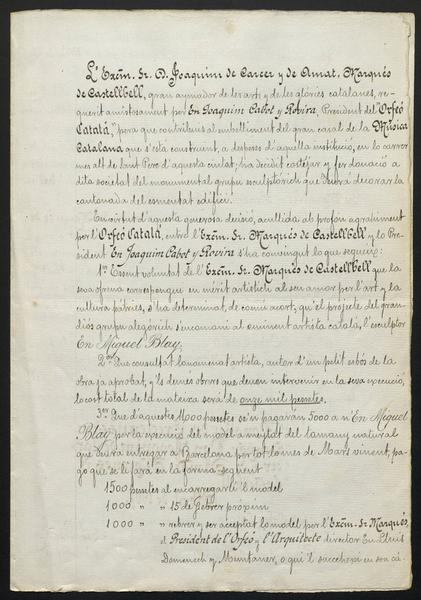 L'Excm. Sr. D. Joaquim de Carcer y de Amat, Marqués
de Castellbell, gran aymador de les arts y de les glóries catalanes, re-
querit amistosament per En Joaquim Cabot y Rovira, President del "Orfeó
Catalá," pera que contribuis al embelliment del gran casal de la Música
Catalana que s'está construint, a despeses d'aquella institució, en lo carrer
mes alt de Sant Pere d'aquesta ciutat; ha decidit costejar y fer donació a
dita societat del monumental grupu esculptórich que deurá decorar la
cantonada del esmentat edifici.
En virtut d'aquesta generosa decisió, acullida ab profón agrahiment
per l'Orfeó Catalá, entre l'Excm. Sr. Marqués de Castellbell y lo Pre-
sident En Joaquim Cabot y Rovira s'ha convingut lo que segueix:
1er Essent voluntat de l'Excm. Sr. Marqués de Castellbell que la
seva ofrena correspongui en mérit artistich al seu amor per l'art y la
cultura pátries, s'ha determinat, de comú acort, qu'el projecte del gran-
diós grupu alegórich s'encomani al eminent artista catalá, l'esculptor
En Miquel Blay.
2on Que consultat l'anomenat artista, autor d'un petit esbós de la
obra ja aprobat, y ls demes obrers que deuen intervenir en la seva execució,
lo cost total de la mateixa será de onze mil pessetes.
3er Que d'aquestes 11,000 pessetes se'n pagarán 5000 a n'En Miquel
Blay per la execució del model a meytat del tamany natural
que deurá entregar a Barcelona per tot lo mes de Mars vinent, pa-
go que se li fará en la forma següent
1500 pessetes al encarregarli 'l model
1000 " " 15 de Febrer propvin
1000 " " rebrer y ser acceptat lo model per l'Excm. Sr. Marqués,
el President de l'Orfeó y l'Arquitecte director En Lluis
Domenech y Montaner, o qui 'l succeheixi en son cá-